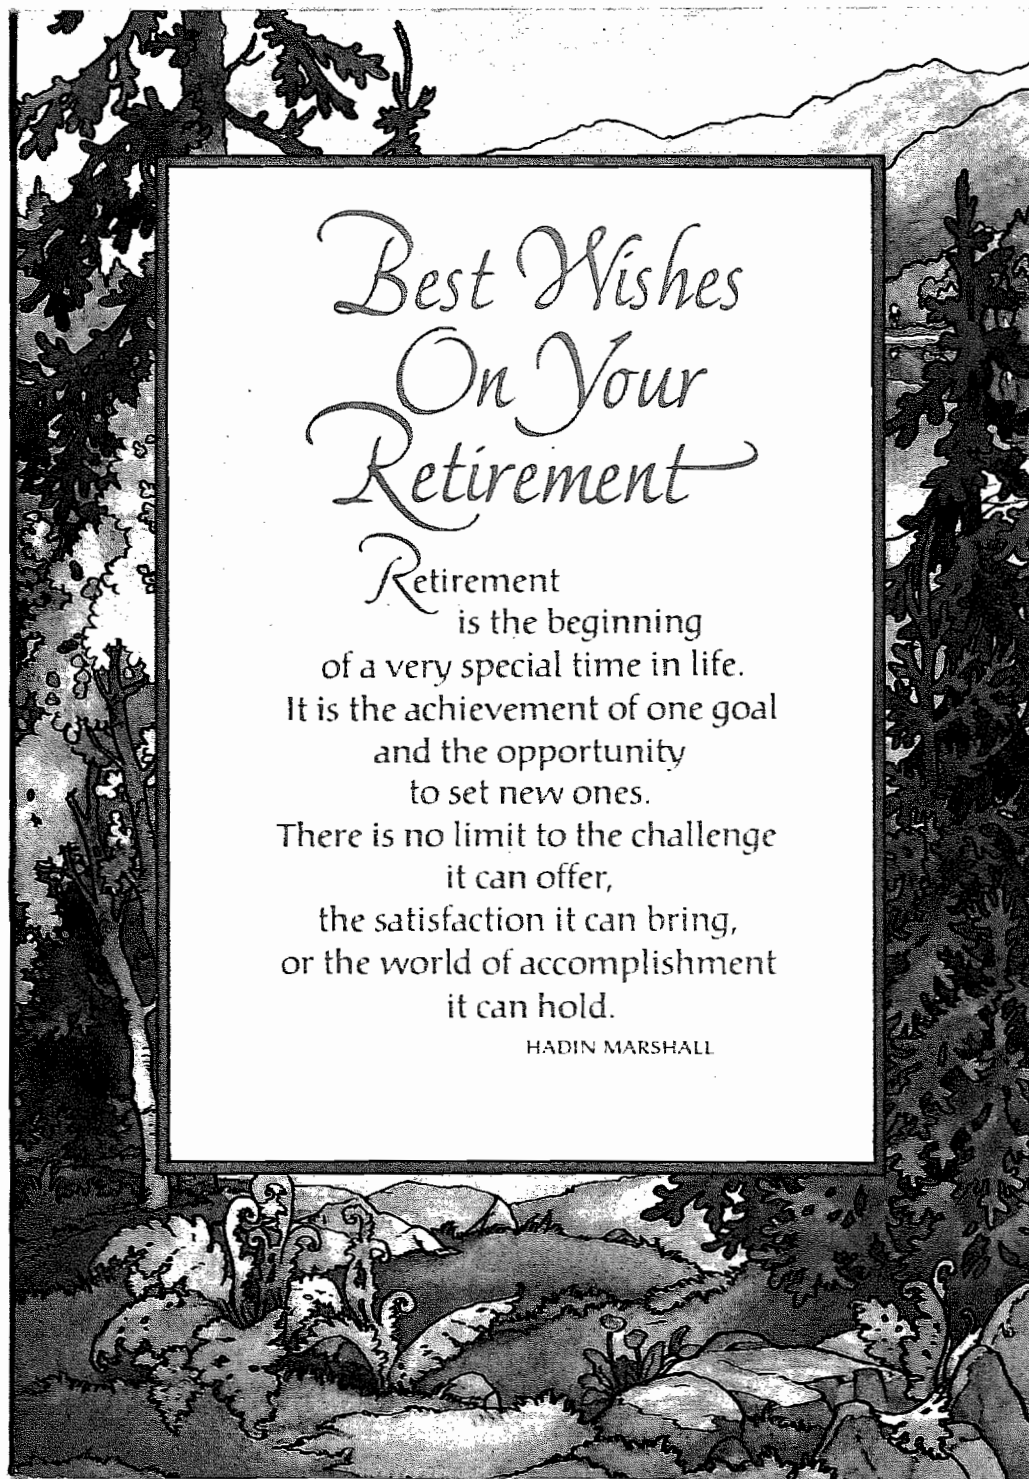 Best Wishes
On Your
Retirement
Retirement
is the beginning
of a very special time in life.
It is the achievement of one goal
and the opportunity
to set new ones.
There is no limit to the challenge
it can offer,
the satisfaction it can bring,
or the world of accomplishment
it can hold.
HADIN MARSHALL